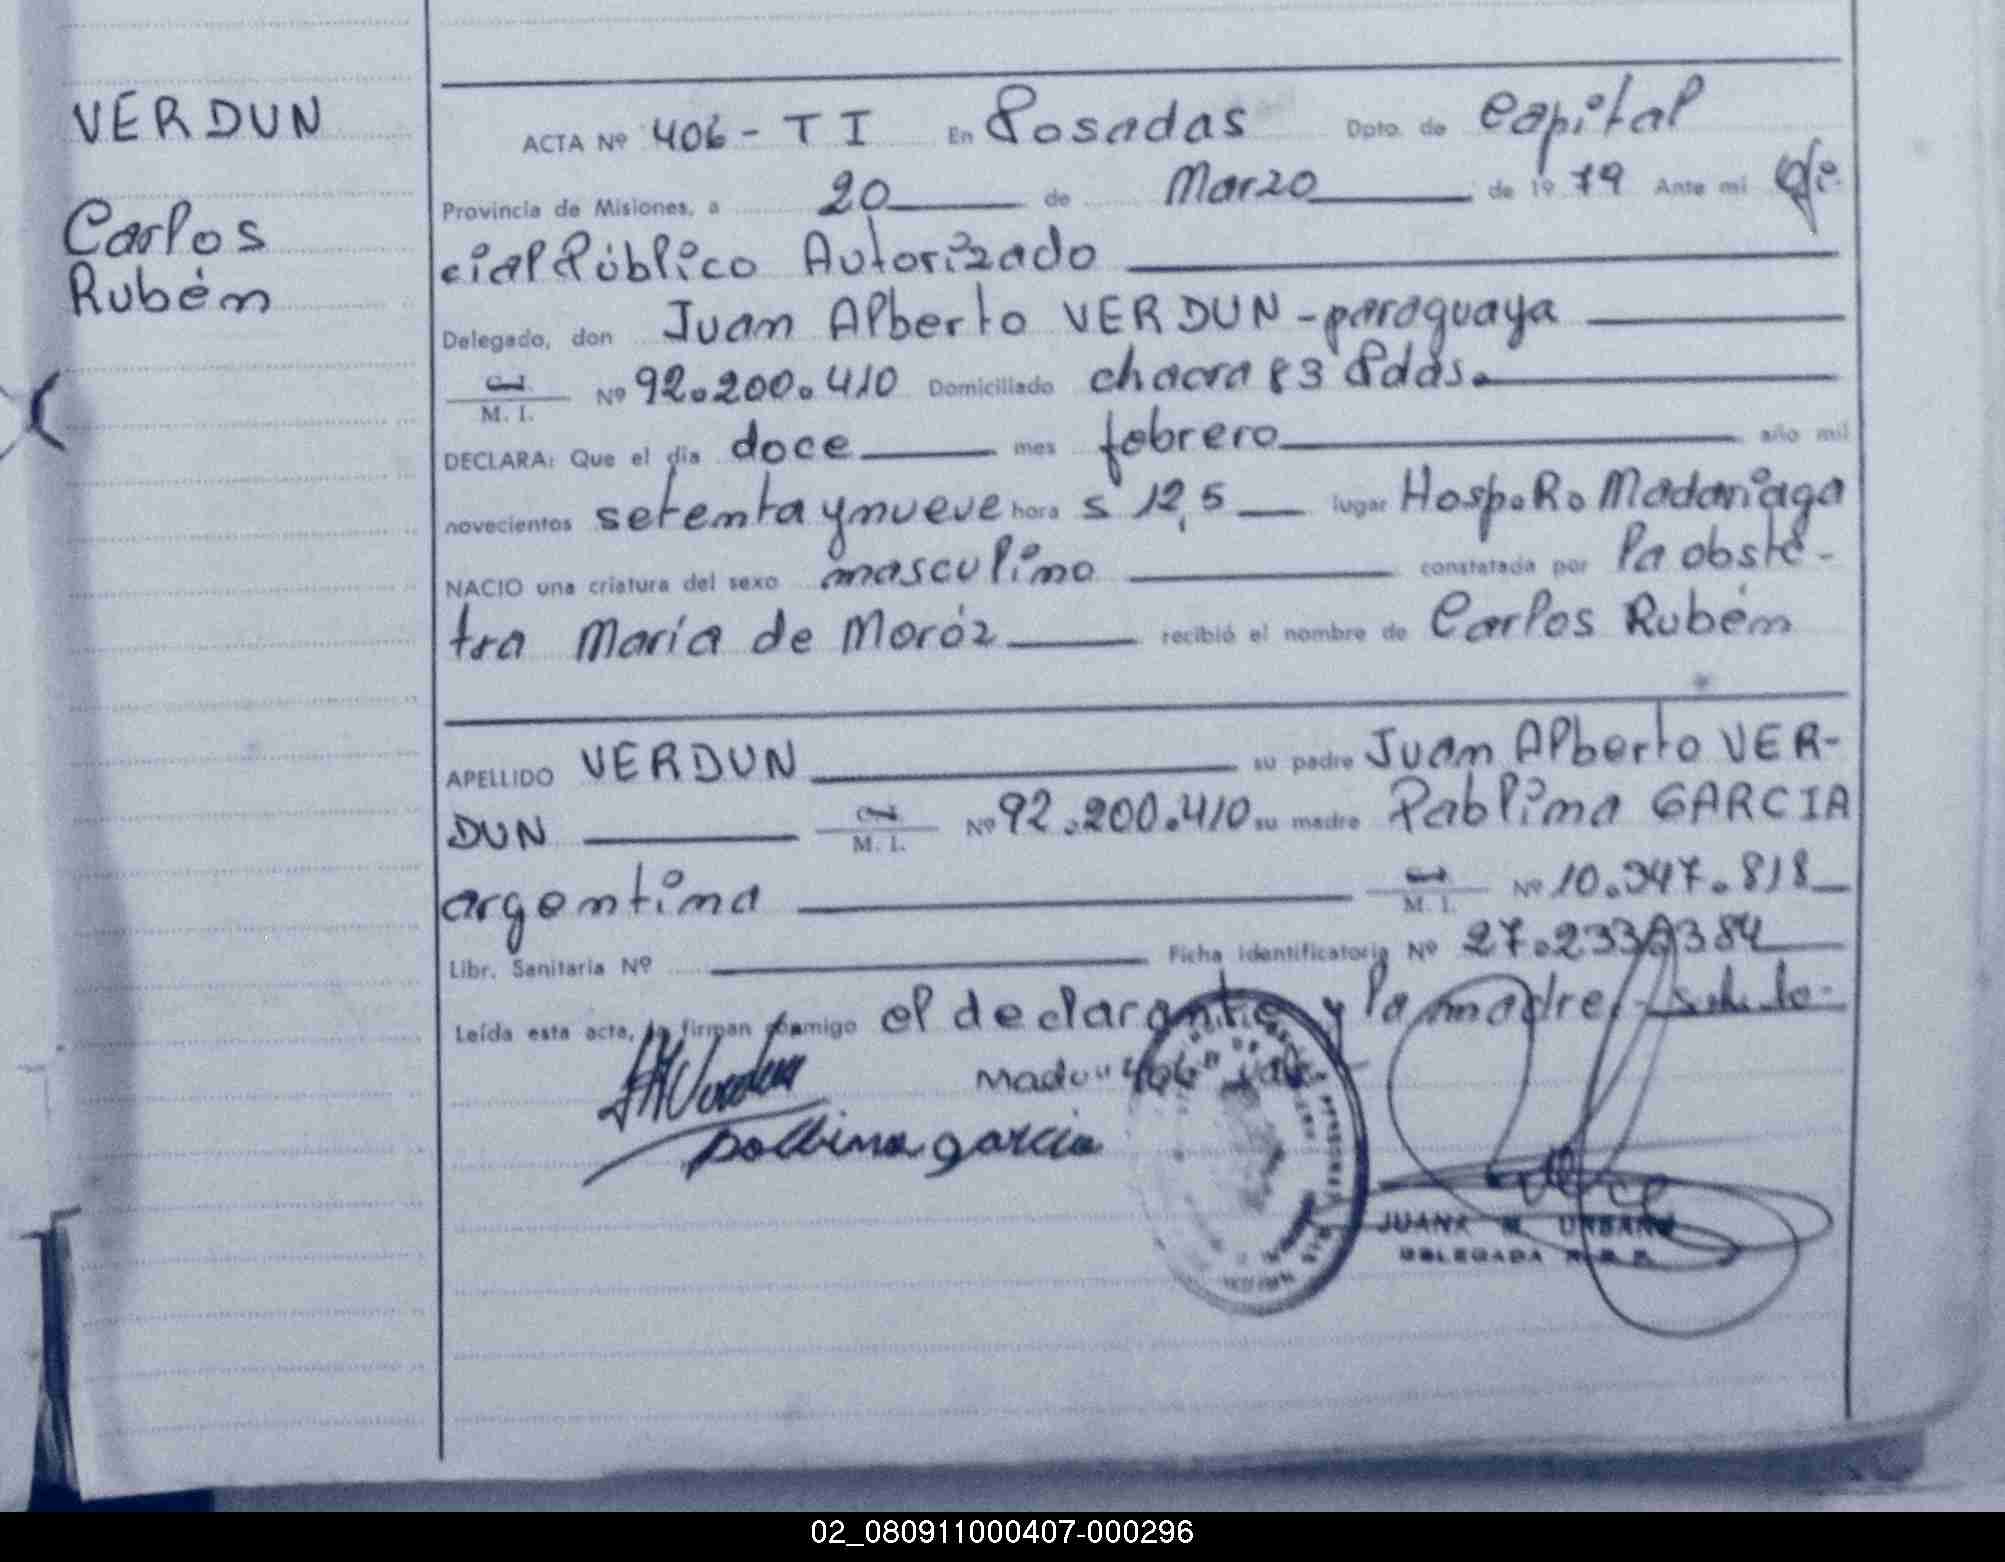 VERDUN
Carlos
Rubén
ACTA Nº 406 - T I En Posadas Dpto. de Capital
Provincia de Misiones, a 20 de Marzo de 19 79 Ante mi Ofi
cial Público Autorizado
Delegado, don Juan Alberto VERDUN - paraguaya
C.I. M. I. Nº 92.200.410 Domiciliado chacra 83 Pdas.
DECLARA: Que el dia doce mes febrero año mil
novecientos setenta y nueve hora s 12,5 lugar Hosp. R. Madariaga
NACIO una criatura del sexo masculino constatada por la obsté-
tra María de Moróz recibió el nombre de Carlos Rubén
APELLIDO VERDUN su padre Juan Alberto VER-
DUN M. I. Nº 92.200.410 su madre Pablina GARCIA
argentina M. I. Nº 10.347.818
Libr. Sanitaria Nº Ficha identificatoria Nº 27.233.384
Leída esta acta, la firman conmigo el declarante y la madre.-
"406"
pablina garcia
JUANA M. URBANO
DELEGADA R. P.
02_080911000407-000296